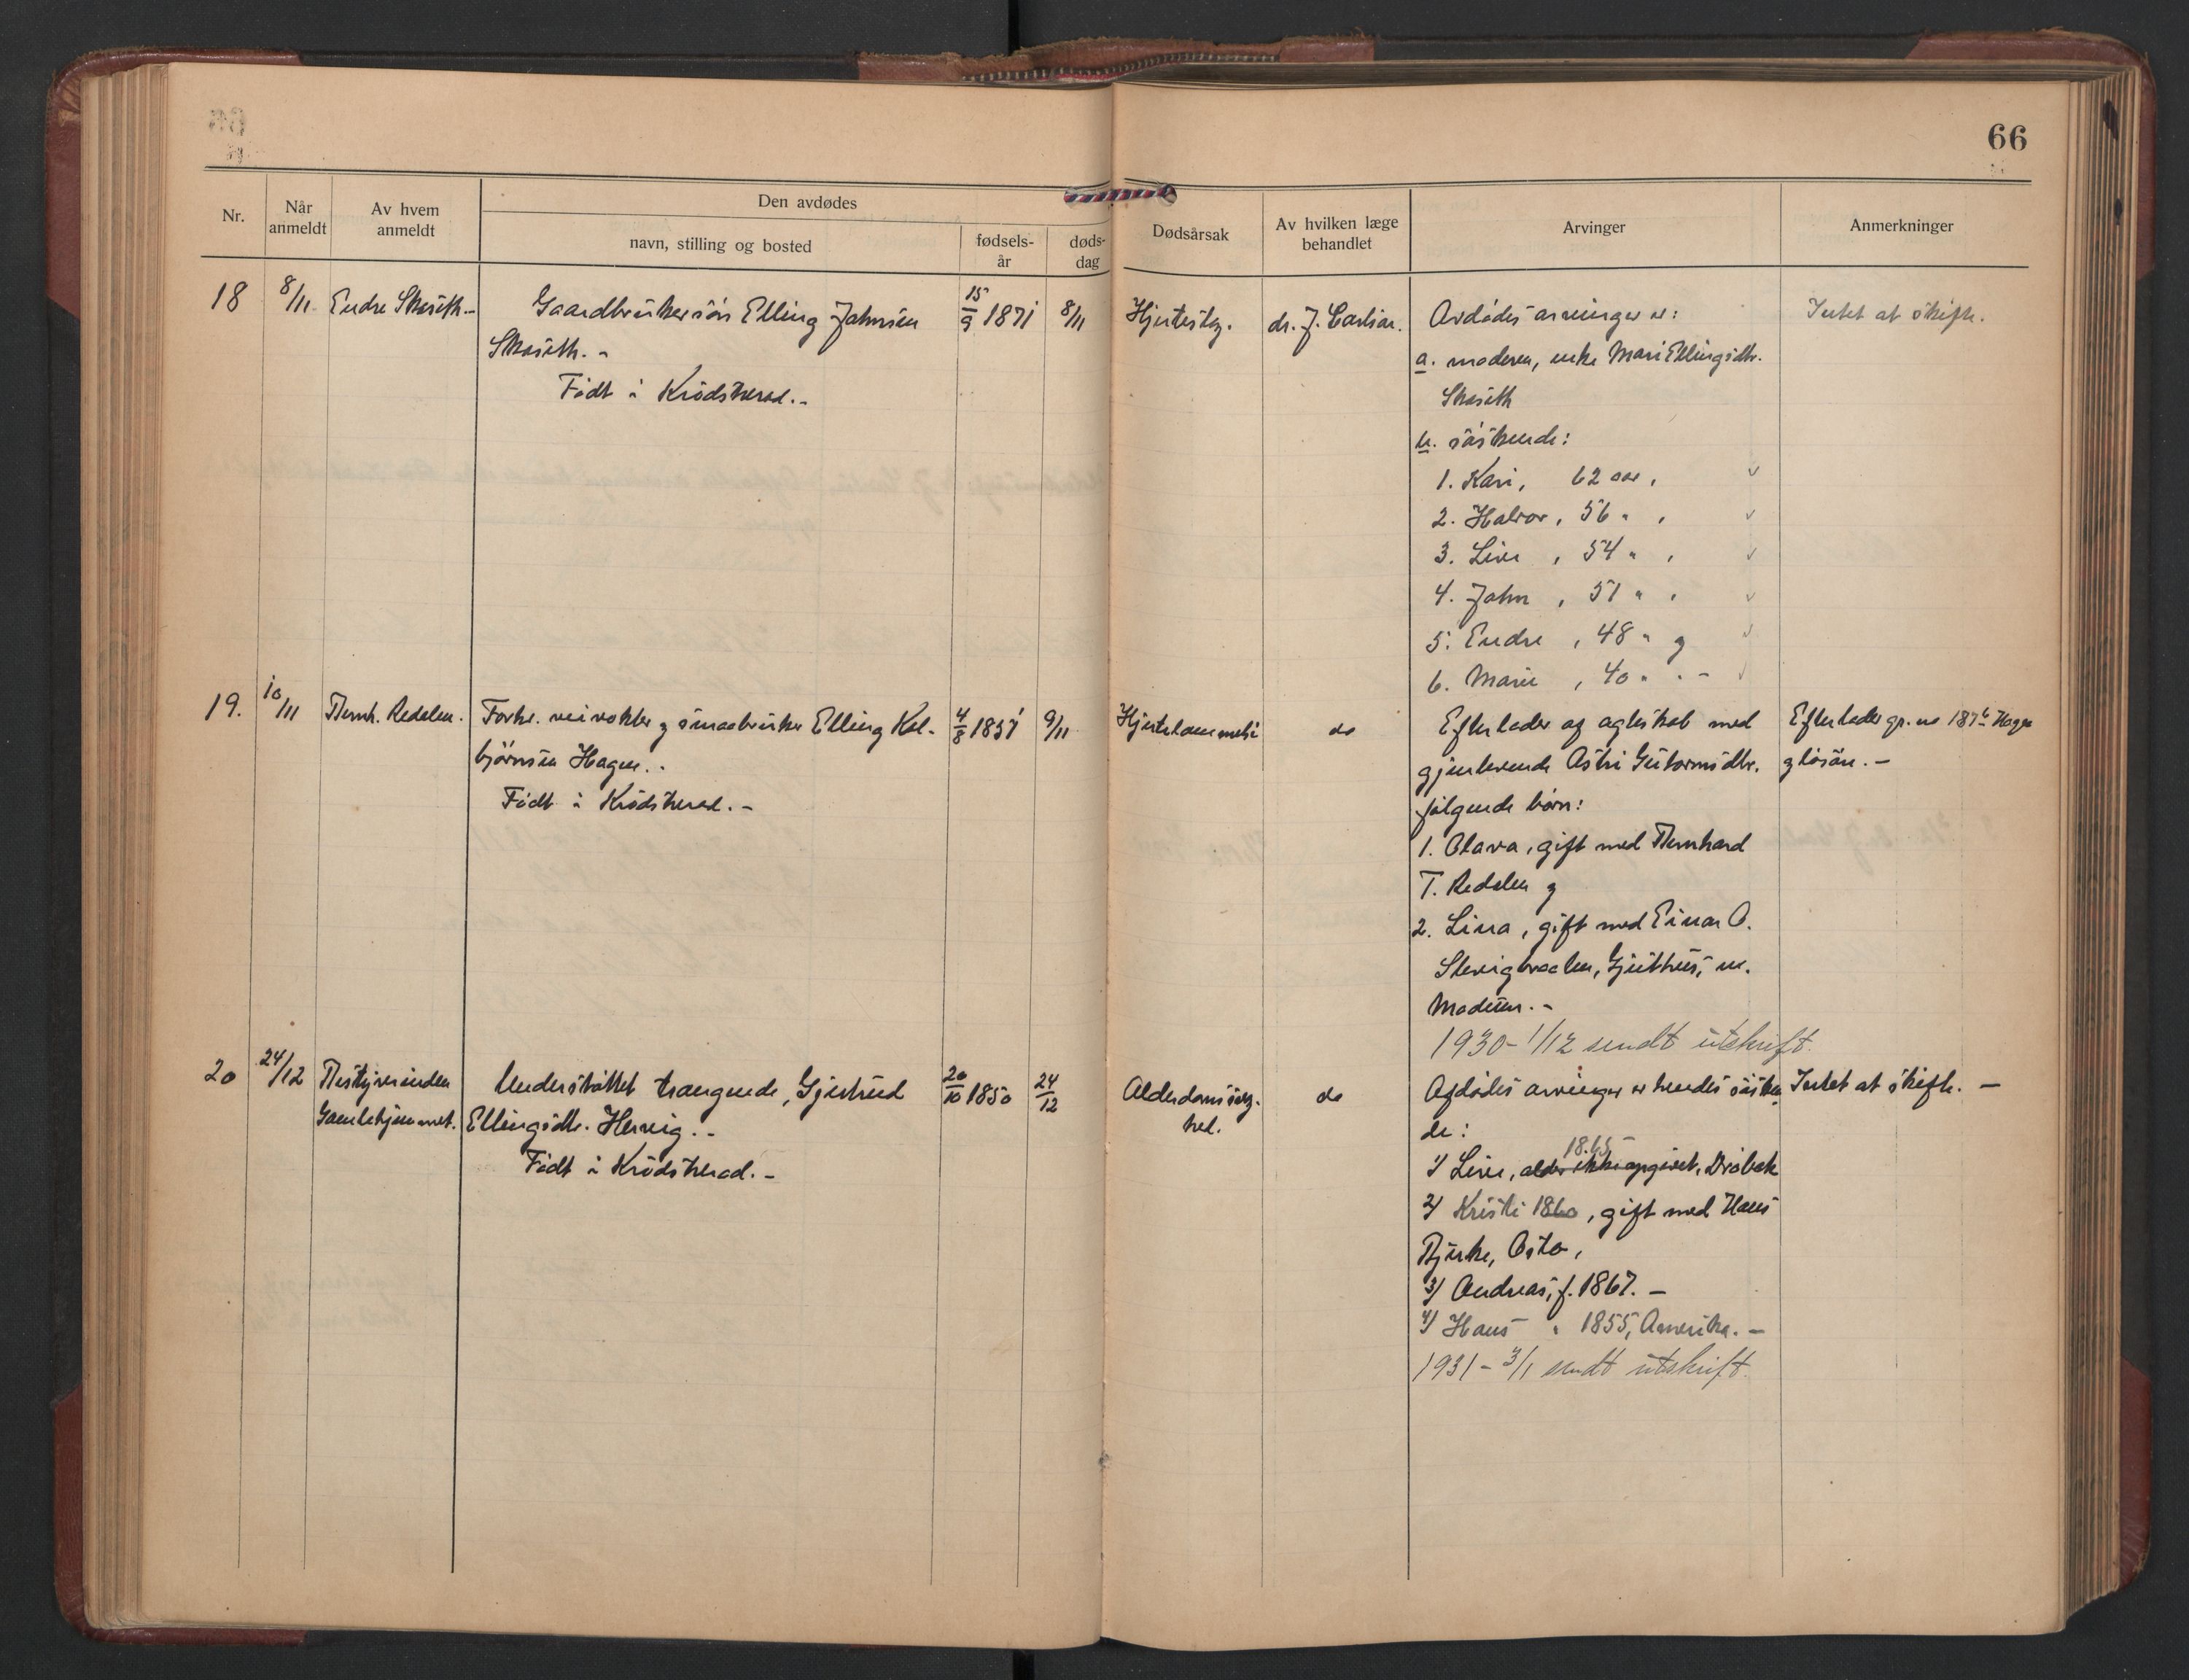 66
Nr.
Når anmeldt
Av hvem anmeldt
Den avdødes
navn, stilling og bosted
fødsels-år
døds-dag
Dødsårsak
Av hvilken læge behandlet
Arvinger
Anmerkninger
18
8/11
Endre Skaseth.-
Gaardbrukersøn Elling Johnsen
Skaseth.-
Født i Krødsherad.-
15/9 1871
8/11
Hjertesyg.
dr. J.
Avdødes arvinger er:
a. moderen, enke Mari Ellingsdtr.
Skaseth
b. søskende:
1. Kari, 62 aar,
2. Halvor, 56 " ,
3. Live , 54 " ,
4. John , 51 " ,
5. Endre , 48 " og
6. Marie , 40 " . -
Intet at skifte.
19.
10/11
Bernh. Redalen.
Forhv. veivokter og smaabruker Elling Kol-
bjørnsen Hagen.-
Født i Krødsherad.-
4/8 1851
9/11
Hjertelammelse
do
Efterlader av egteskab med
gjenlevende Astri Guttormsdtr.
følgende børn:
1. Olava, gift med Bernhard
T. Redalen og
2. Lina, gift med Einar O.
Gjeithus, m.
Modum.-
1930 - 1/12 sendt utskrift.
Efterlader gr. no 187 Hagen
og løsøre.-
20
24/12
Bestyrerinden
Gamlehjemmet.
Understøttet trængende, Gjertrud
Ellingsdtr. Hervig.-
Født i Krødsherad.-
20/10 1850
24/12
Alderdomssvag-
hed.
do
Afdødes arvinger er hendes søsken
de:
1865
1/ Live, alder ikke opgivet, Drøbak
2/ Kristi 1860, gift med Hans
Bjerke, Oslo,
3/ Andreas, f. 1867.-
4/ Hans " 1855, Amerika.-
1931 - 3/1 sendt utskrift.
Intet at skifte.-